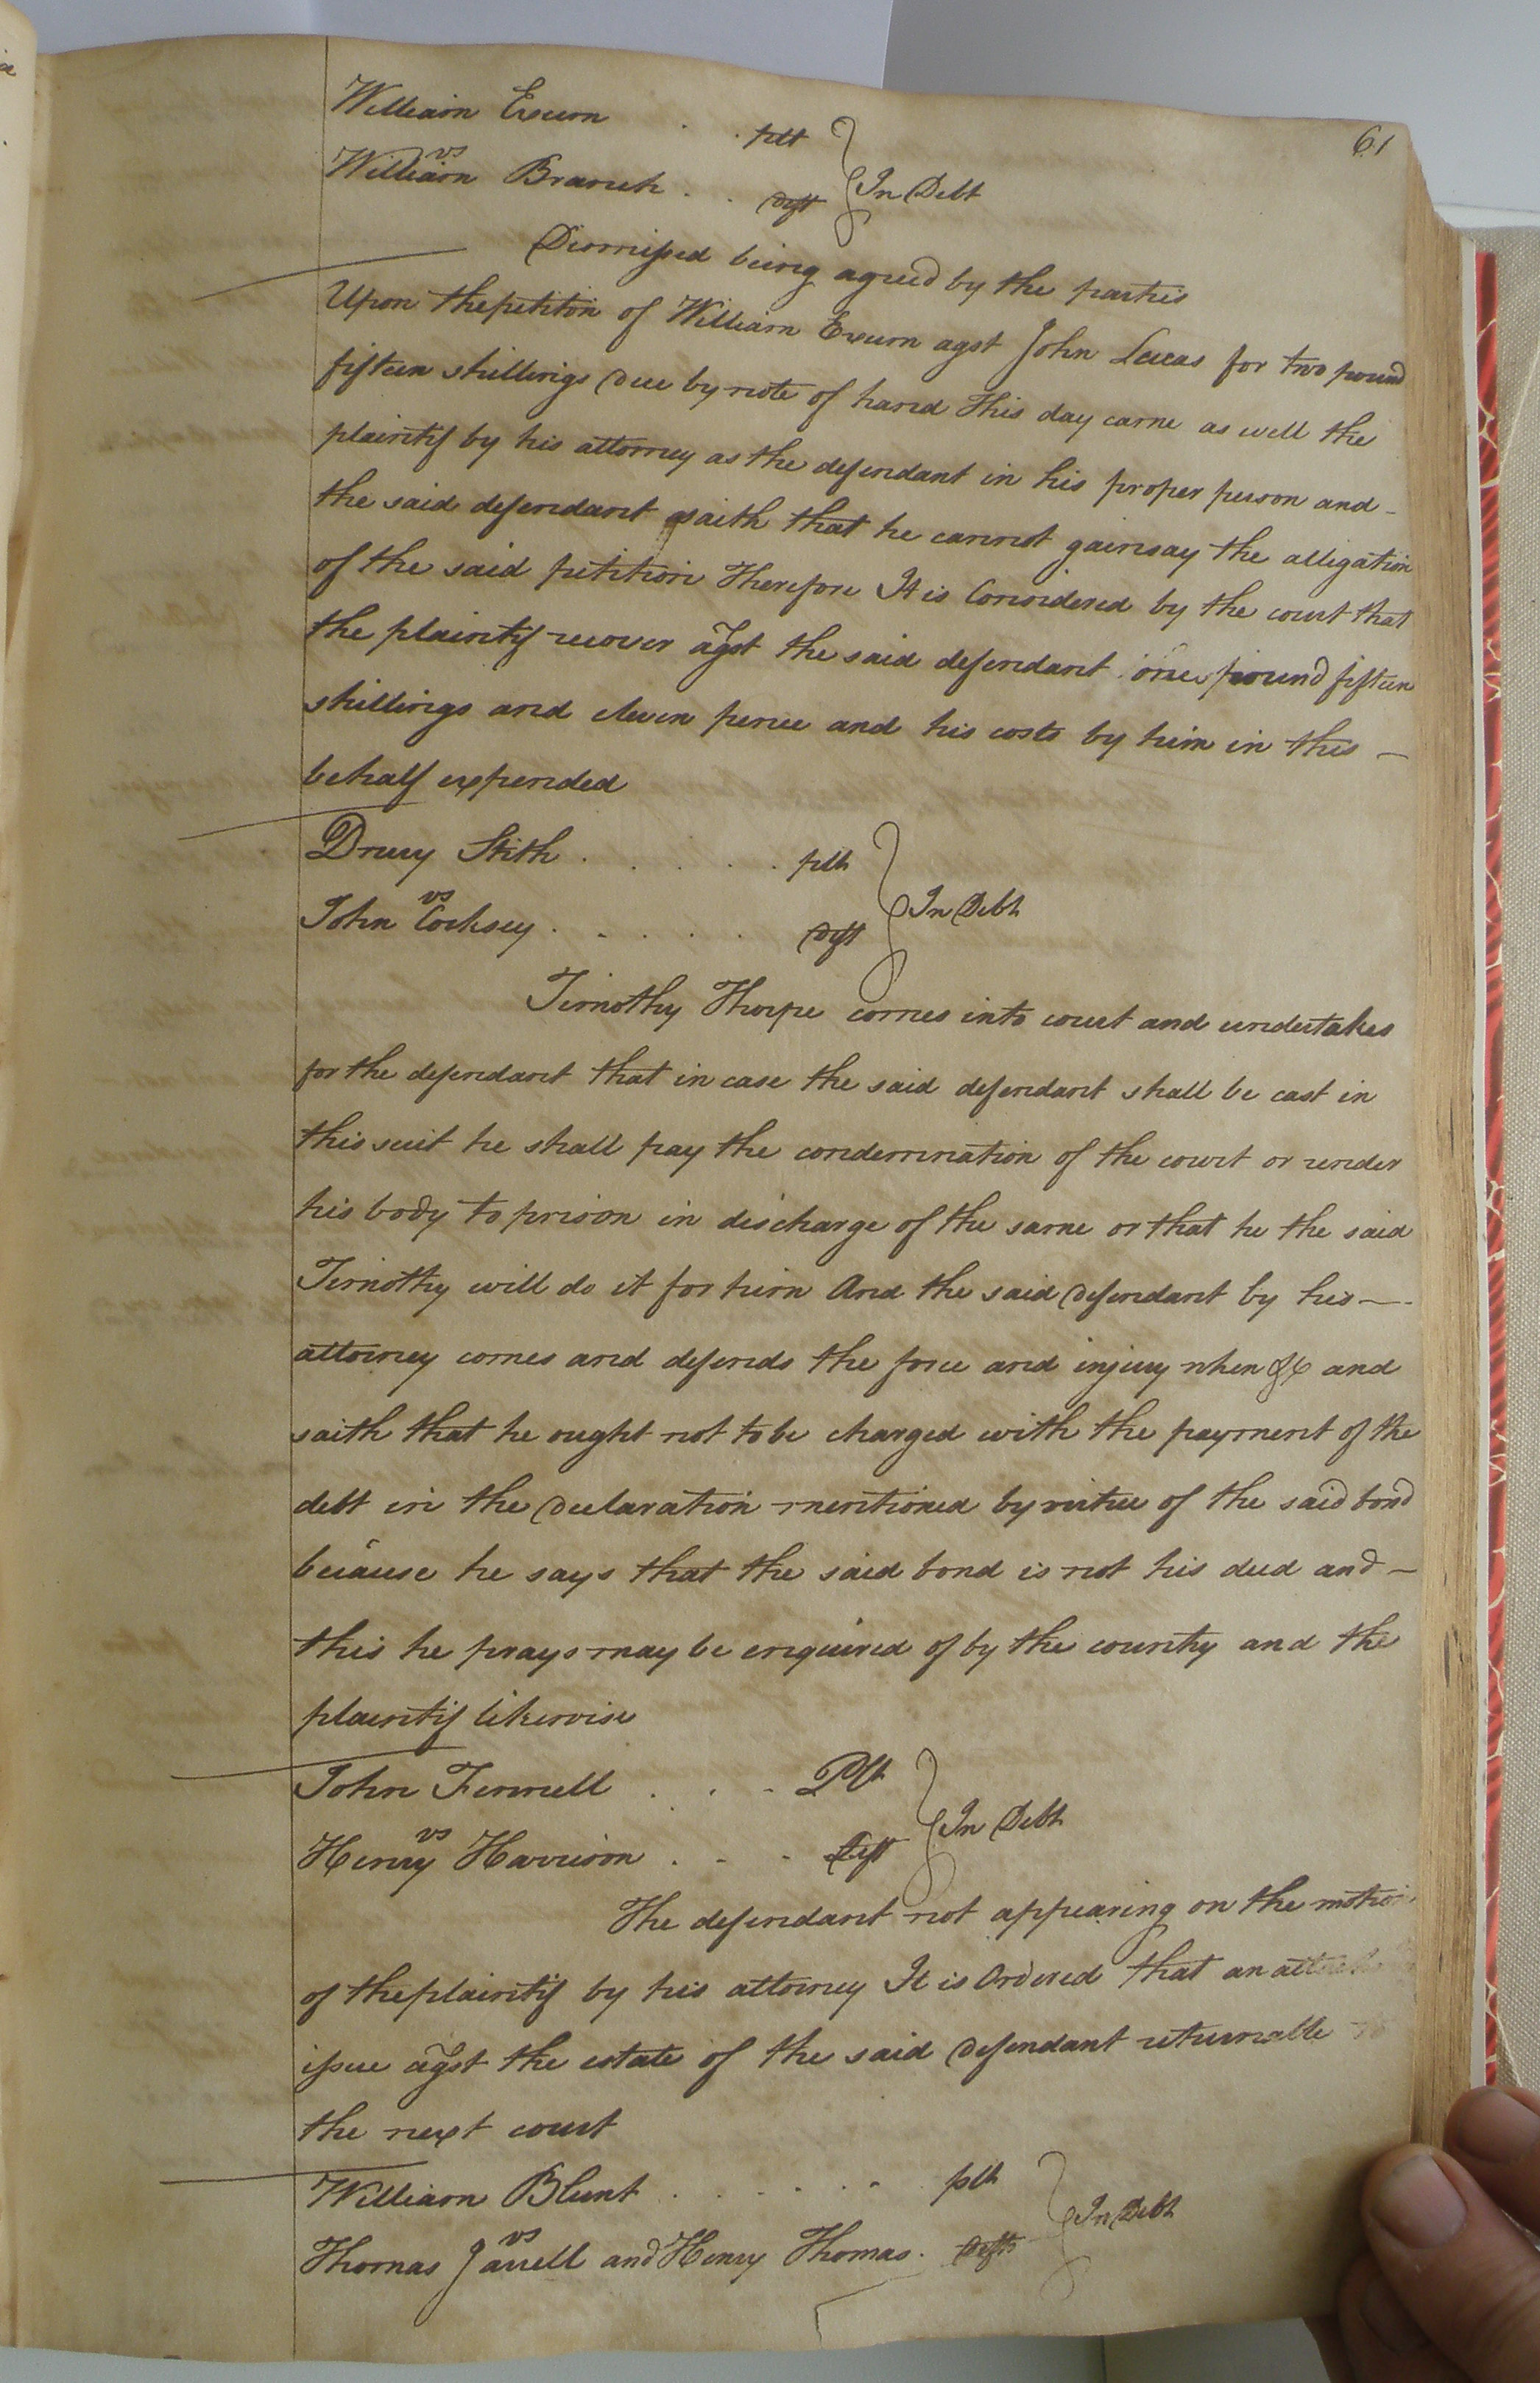 61
William Exum . . plt
vs
William Branch . . deft } In Debt
Dismissed being agreed by the parties
Upon the petition of William Exum agst John Lucas for two pound
fifteen shillings due by note of hand This day came as well the
plaintif by his attorney as the defendant in his proper person and -
the said defendant saith that he cannot gainsay the alligation
of the said petition Therefore It is Considered by the court that
the plaintif recover agst the said defendant one pound fifteen
shillings and eleven pence and his costs by him in this -
behalf expended
Drury Stith . . . . . plt
vs
John Cocksey . . . . . deft } In Debt
Timothy Thorpe comes into court and undertakes
for the defendant that in case the said defendant shall be cast in
this suit he shall pay the condemnation of the court or render
his body to prison in discharge of the same or that he the said
Timothy will do it for him And the said defendant by his -
attorney comes and defends the force and injury when &c and
saith that he ought not to be charged with the payment of the
debt in the declaration mentioned by virtue of the said bond
because he says that the said bond is not his deed and -
this he prays may be enquired of by the country and the
plaintif likewise
John Fennell . . . Plt
vs
Henry Harrison . . . Deft } In Debt
The defendant not appearing on the motion
of the plaintif by his attorney It is Ordered that an
issue agst the estate of the said defendant returnable to
the next court
William Blunt . . . . . plt
vs
Thomas Jarrell and Henry Thomas . defts } In Debt